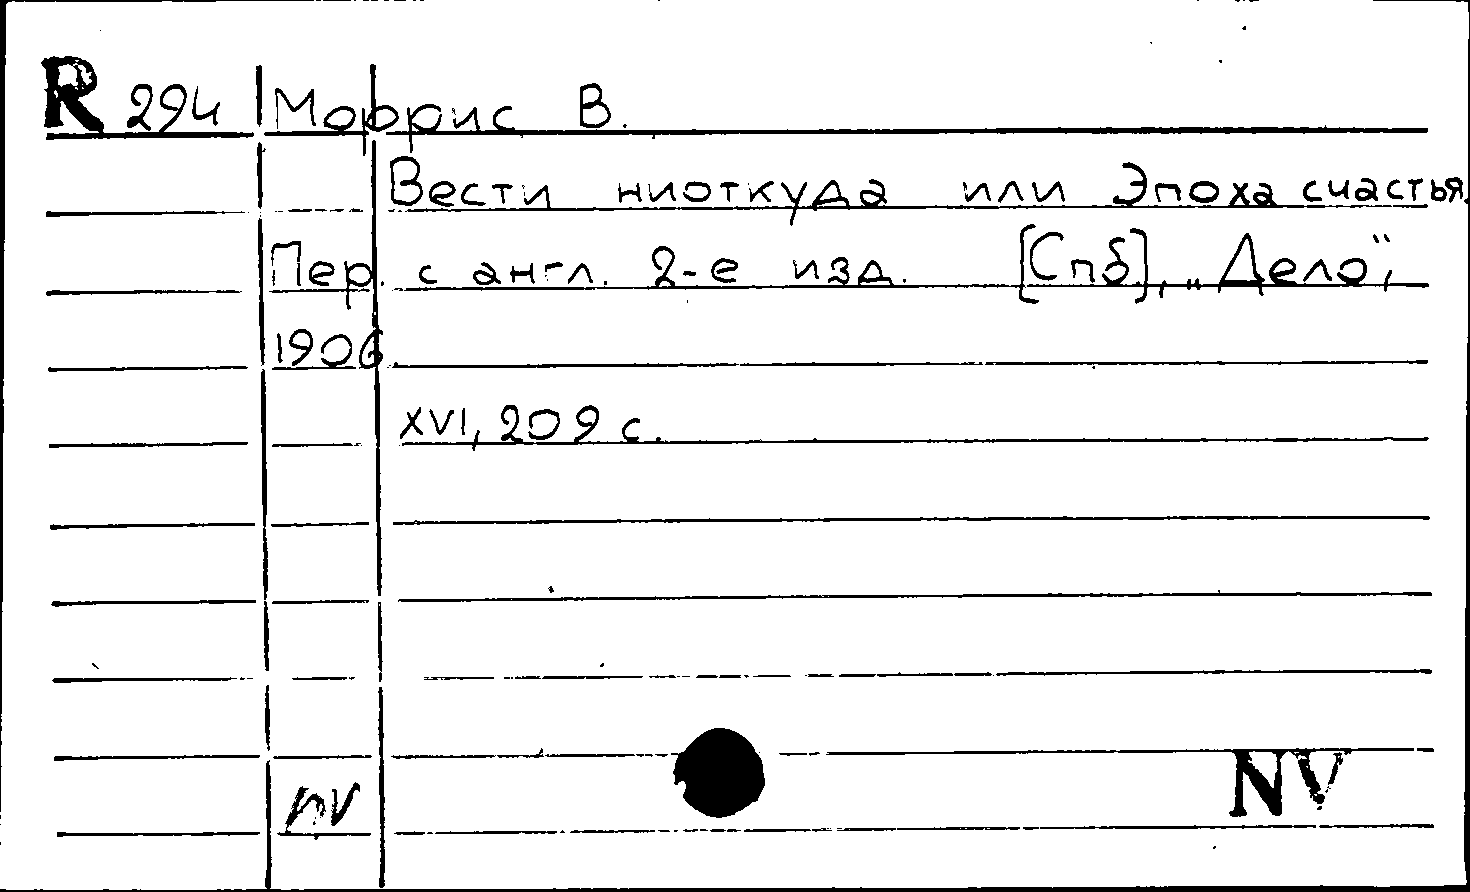 R 294 Моррис В.
Вести ниоткуда или Эпоха счастья.
Пер. с англ. 2-е изд. [Спб], „Дело“,
1906.
XVI, 209 с.
NV NV